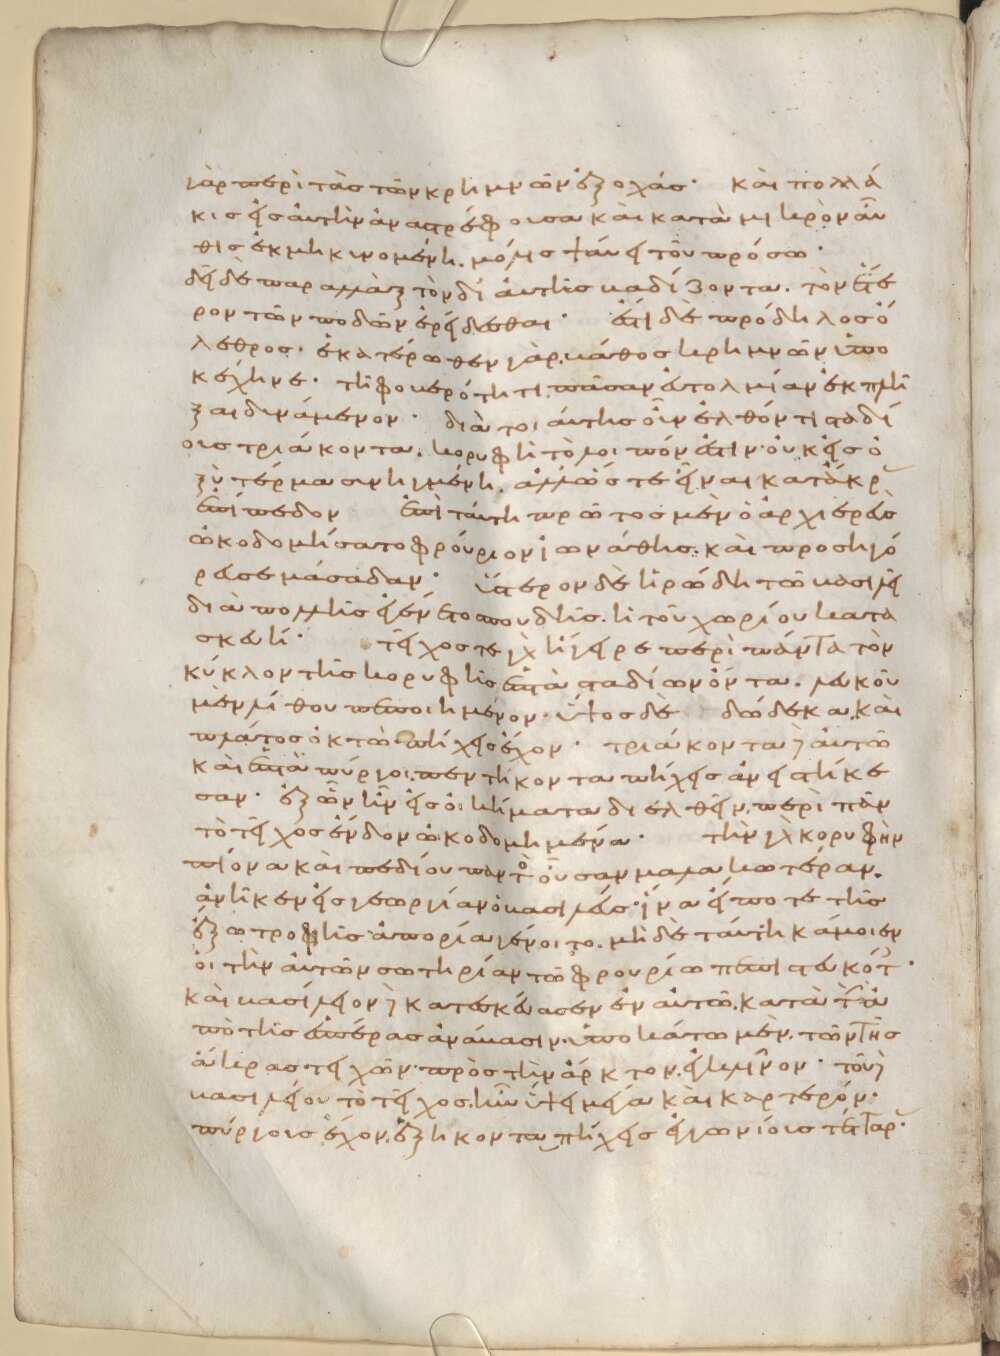 γὰρ περὶ τὰς τῶν κρημνῶν ἐξοχάς· καὶ πολλά
κις εἰς αὐτὴν ἀναστρέφουσα καὶ κατὰ μικρὸν αὖ
θις ἐκμηκυνομένη. μόλις ψαύει τοῦ πρόσω·
δεῖ δὲ παραλλὰξ τὸν δι αὐτῆς βαδίζοντα. τὸν ἕτε
ρον τῶν ποδῶν ἐρείδεσθαι· ἔστι δὲ πρόδηλος ὄ
λεθρος· ἑκατέρωθεν γὰρ. βάθος κρημνῶν ὑπο
κέχηνε· τῇ φοβερότητι πᾶσαν εὐτολμίαν ἐκπλῆ
ξαι δυνάμενον· διὰ τοιαύτης οὖν ἐλθόντι σταδί
ους τριάκοντα. κορυφὴ τὸ λοιπόν ἐστιν· οὐκ εἰς ὀ
ξὺ τέρμα συνηγμένη. ἀλλ' ὥστε εἶναι κατάκρ
ἐπίπεδον ἐπὶ ταύτῃ πρῶτος μὲν ὁ ἀρχιερεὺς
ὠκοδομήσατο φρούριον ἰωνάθης. καὶ προσηγό
ρευσε μάσαδαν· ὕστερον δὲ ἡρώδη τῶ βασιλεῖ
διὰ πολλῆς ἐγένετο σπουδῆς. ἡ τοῦ χωρίου κατα
σκευή· τεῖχός τε γὰρ ἤγειρε περὶ πάντα τὸν
κύκλον τῆς κορυφῆς ἑπτὰ σταδίων ὄντα. λευκοῦ
μὲν λίθου πεποιημένον· ὕψος δὲ δώδεκα. καὶ
πλάτος ὀκτὼ πήχεις ἔχον· τριάκοντα δ' αὐτῶ
καὶ ἑπτὰ πύργοι. πεντηκονταπήχεις ἀνεστήκε
σαν· ἐξ ὧν ἦν εἰς οἰκήματα διελθεῖν. περὶ πᾶν
τὸ τεῖχος ἔνδον ὠκοδομημένα· τὴν γὰρ κορυφὴν
πίονα καὶ πεδίου παντὸς οὖσαν μαλακωτέραν.
ἀνῆκεν εἰς γεωργίαν ὁ βασιλεύς· ἵνα εἴποτε τῆς
ἔξω τροφῆς ἀπορία γένοιτο. μὴ δὲ ταύτῃ κάμοιεν
οἱ τὴν αὐτῶν σωτηρίαν τῶ φρουρίω πεπιστευκότ·
καὶ βασίλειον δ' κατεσκεύασεν ἐν αὐτῶ. κατὰ τὴν ἀ
πὸ τῆς ἑσπέρας ἀνάβασιν. ὑποκάτω μὲν. τῶν τῆς
ἄκρας τειχῶν· πρὸς τὴν ἄρκτον. ἐκκλῖνον· τοῦ δ'
βασιλείου τὸ τεῖχος. ἦν ὕψει μέγα καὶ καρτερόν·
πύργους ἔχον. ἑξηκονταπήχεις ἐγγωνίους τέτταρ·